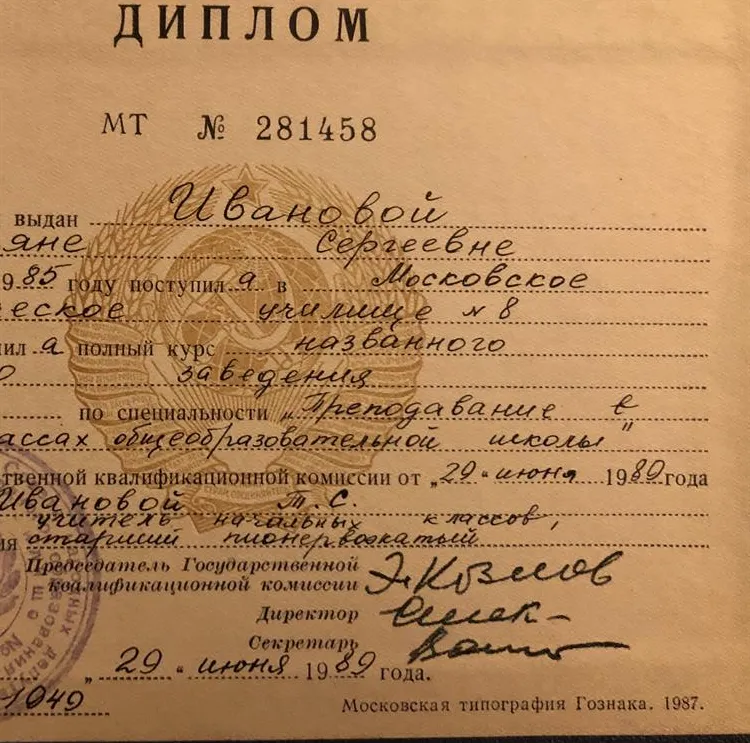 ДИПЛОМ
МТ № 281458
выдан Ивановой
яне Сергеевне
985 году поступила в Московское
еское училище № 8
ил а полный курс названного
о заведения
по специальности „Преподавание в
ассах общеобразовательной школы"
твенной квалификационной комиссии от „29" июня 1989 года
Ивановой Т. С.
учитель начальных классов,
ия старший пионервожатый
Председатель Государственной
квалификационной комиссии Э. Козлов
Директор
Секретарь
„29" июня 1989 года.
1049
Московская типография Гознака. 1987.